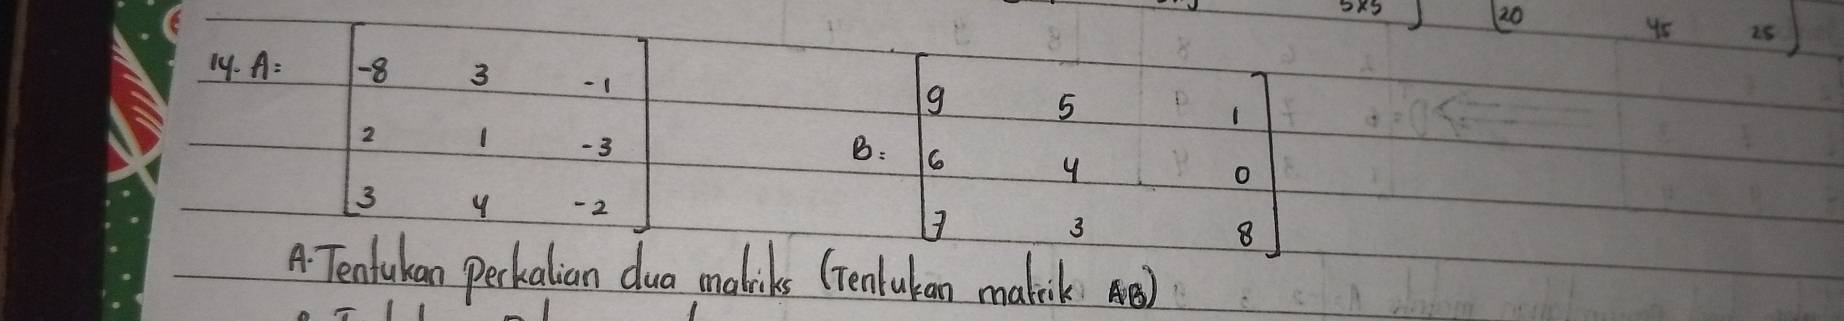 5x5 20 45 25
14. A: -8 3 -1
2 1 -3
3 4 -2
B: 9 5 1
6 4 0
7 3 8
A. Tentukan perkalian dua matriks (Tentukan matrik AB)